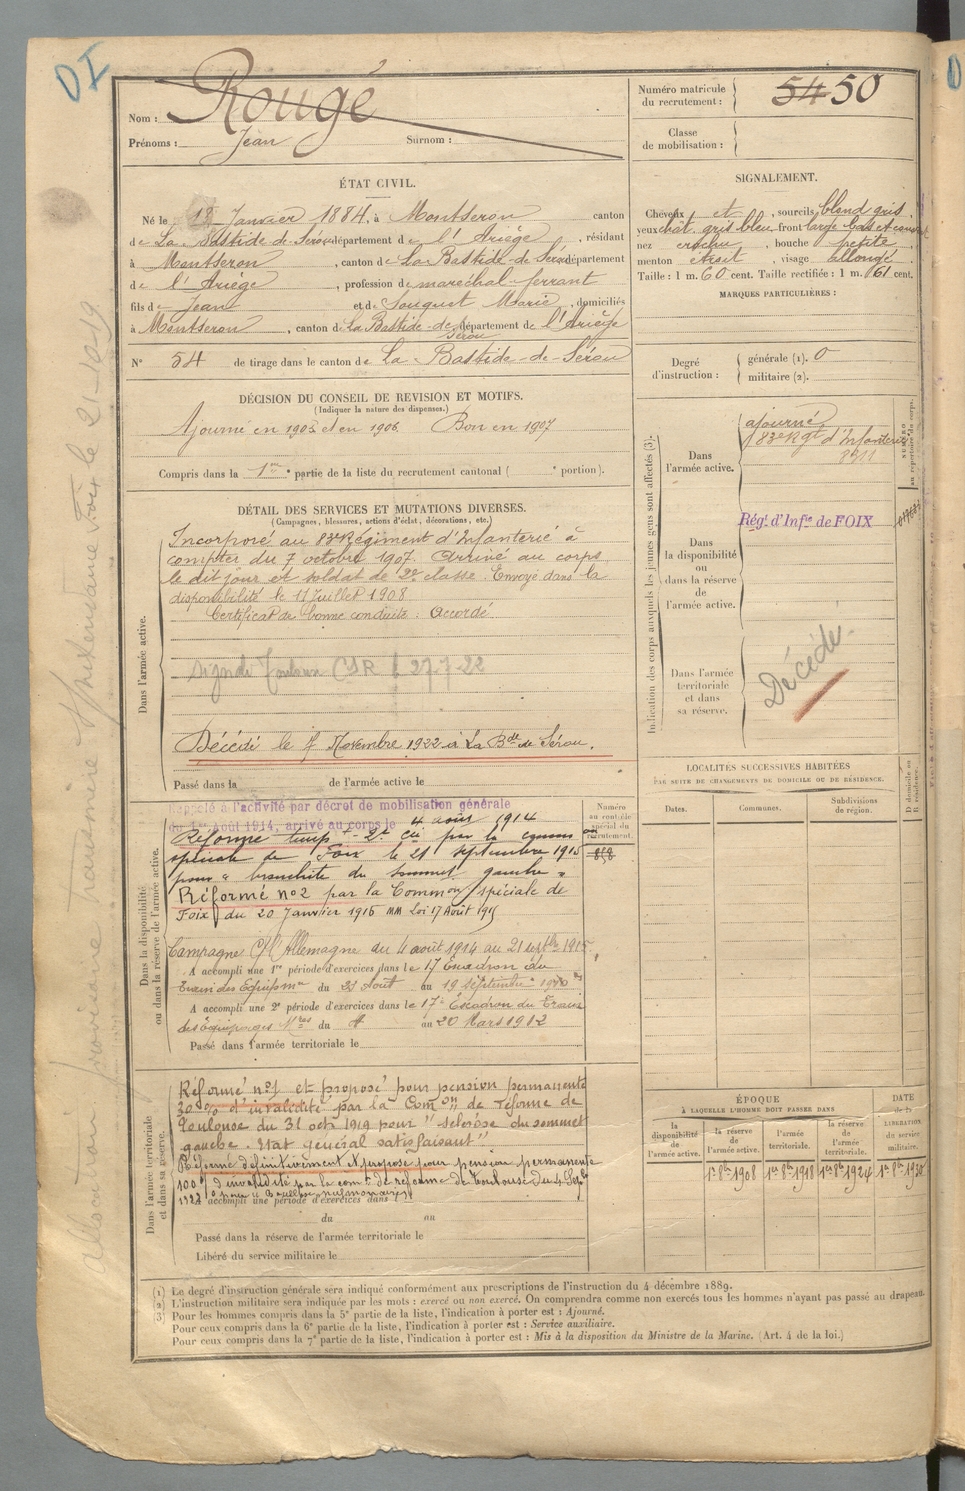 DI
Nom : Rougé
Prénoms : Jean Surnom :
Numéro matricule du recrutement : 5450
Classe de mobilisation :
ÉTAT CIVIL.
Né le 12 Janvier 1884, à Montseron canton
de La Bastide de Sérou département de l'Ariège, résidant
à Montseron, canton de La Bastide-de Sérou département
de l'Ariège, profession de maréchal-ferrant
fils de Jean et de Souquet Marie, domiciliés
à Montseron, canton de La Bastide-de Sérou département de l'Ariège
N° 54 de tirage dans le canton de La Bastide-de-Sérou
SIGNALEMENT.
Cheveux et, sourcils blond gris,
yeux chât. gris bleu front large bas et
nez crochu, bouche petite,
menton étroit, visage allongé.
Taille : 1 m. 60 cent. Taille rectifiée : 1 m. 61 cent.
MARQUES PARTICULIÈRES :
Degré d'instruction : générale (1). 0
militaire (2).
DÉCISION DU CONSEIL DE REVISION ET MOTIFS.
(Indiquer la nature des dispenses.)
Ajourné en 1905 et en 1906. Bon en 1907
Compris dans la 1re partie de la liste du recrutement cantonal ( e portion).
DÉTAIL DES SERVICES ET MUTATIONS DIVERSES.
(Campagnes, blessures, actions d'éclat, décorations, etc.)
Dans l'armée active.
Incorporé au 83e Régiment d'Infanterie à
compter du 7 octobre 1907. Arrivé au corps
le dit jour et soldat de 2e classe. Envoyé dans la
disponibilité le 11 Juillet 1908
Certificat de bonne conduite : Accordé
CSR 27-7-22
Décédé le 7 Novembre 1922 à La Bde de Sérou.
Passé dans la de l'armée active le
Indication des corps auxquels les jeunes gens sont affectés (3).
Dans l'armée active.
ajourné
83e Rgt d'Infanterie
Régt d'Infie de FOIX
Dans la disponibilité ou dans la réserve de l'armée active.
Dans l'armée territoriale et dans sa réserve.
Décédé
NUMÉRO au répertoire du corps.
LOCALITÉS SUCCESSIVES HABITÉES
PAR SUITE DE CHANGEMENTS DE DOMICILE OU DE RÉSIDENCE.
Dates. Communes. Subdivisions de région. D domicile ou R résidence.
Dans la disponibilité ou dans la réserve de l'armée active.
Numéro au contrôle spécial du recrutement.
Rappelé à l'activité par décret de mobilisation générale
du 1er Août 1914, arrivé au corps le 4 août 1914
Réforme temp. 2e par la comm on
spéciale de Foix le 21 septembre 1915
pour « bronchite du sommet gauche »
Réformé n°2 par la Common spéciale de
Foix du 20 Janvier 1916 Loi 17 Août 1915
Campagne C/ l'Allemagne du 4 août 1914 au 21 septbre 1915
A accompli une 1re période d'exercices dans le 17 Escadron du
Train des Equip du 23 août au 19 septembre 1910
A accompli une 2e période d'exercices dans le 17e Escadron du Train
des Équipages du 4 au 20 Mars 1912
Passé dans l'armée territoriale le
Dans l'armée territoriale et dans sa réserve.
Réformé n°1 et proposé pour pension permanente
30% d'invalidité par la Comon de réforme de
Toulouse du 31 oct. 1919 pour "sclérose du sommet
gauche. Etat général satisfaisant"
Réformé définitivement et proposé pour pension permanente
100% d'invalidité par la comon de réforme de Toulouse du 4 Sepb
1922 pour
A accompli une période d'exercices dans l
du au
Passé dans la réserve de l'armée territoriale le
Libéré du service militaire le
ÉPOQUE
À LAQUELLE L'HOMME DOIT PASSER DANS
la disponibilité de l'armée active. la réserve de l'armée active. l'armée territoriale. la réserve de l'armée territoriale.
DATE de la LIBÉRATION du service militaire.
1er 8bre 1908 1er 8bre 1918 1er 8bre 1924 1er 8bre 1930
(1) Le degré d'instruction générale sera indiqué conformément aux prescriptions de l'instruction du 4 décembre 1889.
(2) L'instruction militaire sera indiquée par les mots : exercé ou non exercé. On comprendra comme non exercés tous les hommes n'ayant pas passé au drapeau.
(3) Pour les hommes compris dans la 5e partie de la liste, l'indication à porter est : Ajourné.
Pour ceux compris dans la 6e partie de la liste, l'indication à porter est : Service auxiliaire.
Pour ceux compris dans la 7e partie de la liste, l'indication à porter est : Mis à la disposition du Ministre de la Marine. (Art. 4 de la loi.)
Foix le 21-10-19